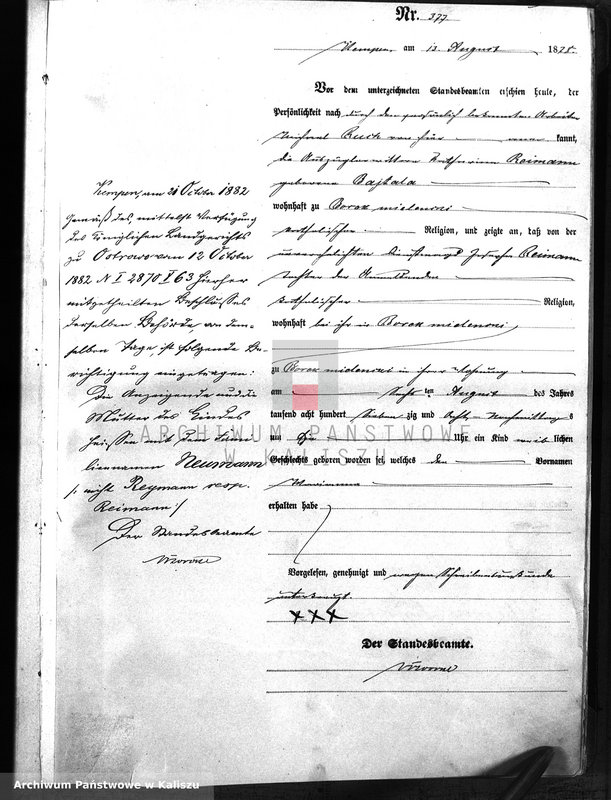 Nr. 377
Kempen, am 13 August 1878.
Vor dem unterzeichneten Standesbeamten erschien heute, der
Persönlichkeit nach durch den persönlich bekannten Arbeiter
Michael von hier kannt,
die Auszüglerwittwe Katharina Reimann
geborene Bajtala
wohnhaft zu Borek mielencki
katholischer Religion, und zeigte an, daß von der
unverehelichten Dienstmagd Josepha Reimann
Tochter der
katholischer Religion,
wohnhaft bei ihr in Borek mielencki
zu Borek mielencki in ihrer Wohnung
am ten August des Jahres
tausend acht hundert sieben zig und acht Nachmittag s
um Uhr ein Kind weib lichen
Geschlechts geboren worden sei, welches den Vornamen
Marianna
erhalten habe
Vorgelesen, genehmigt und wegen Schreibensunkunde
unterkreuzt.
XXX
Der Standesbeamte.
Kempen, am 21 October 1882
Gemäß des mittelst Verfügung
des Königlichen Landgerichts
zu Ostrowo vom 12 October
1882 N I 2870 hierher
mitgetheilten Beschlusses
derselben Behörde von dem-
selben Tage, ist folgende Be-
richtigung eingetragen:
Die Anzeigende und die
Mutter des Kindes
heissen mit dem Fami
liennamen Neumann
/: nicht Reymann resp.
Reimann :/
Der Standesbeamte
ARCHIWUM PAŃSTWOWE
W KALISZU
Archiwum Państwowe w Kaliszu